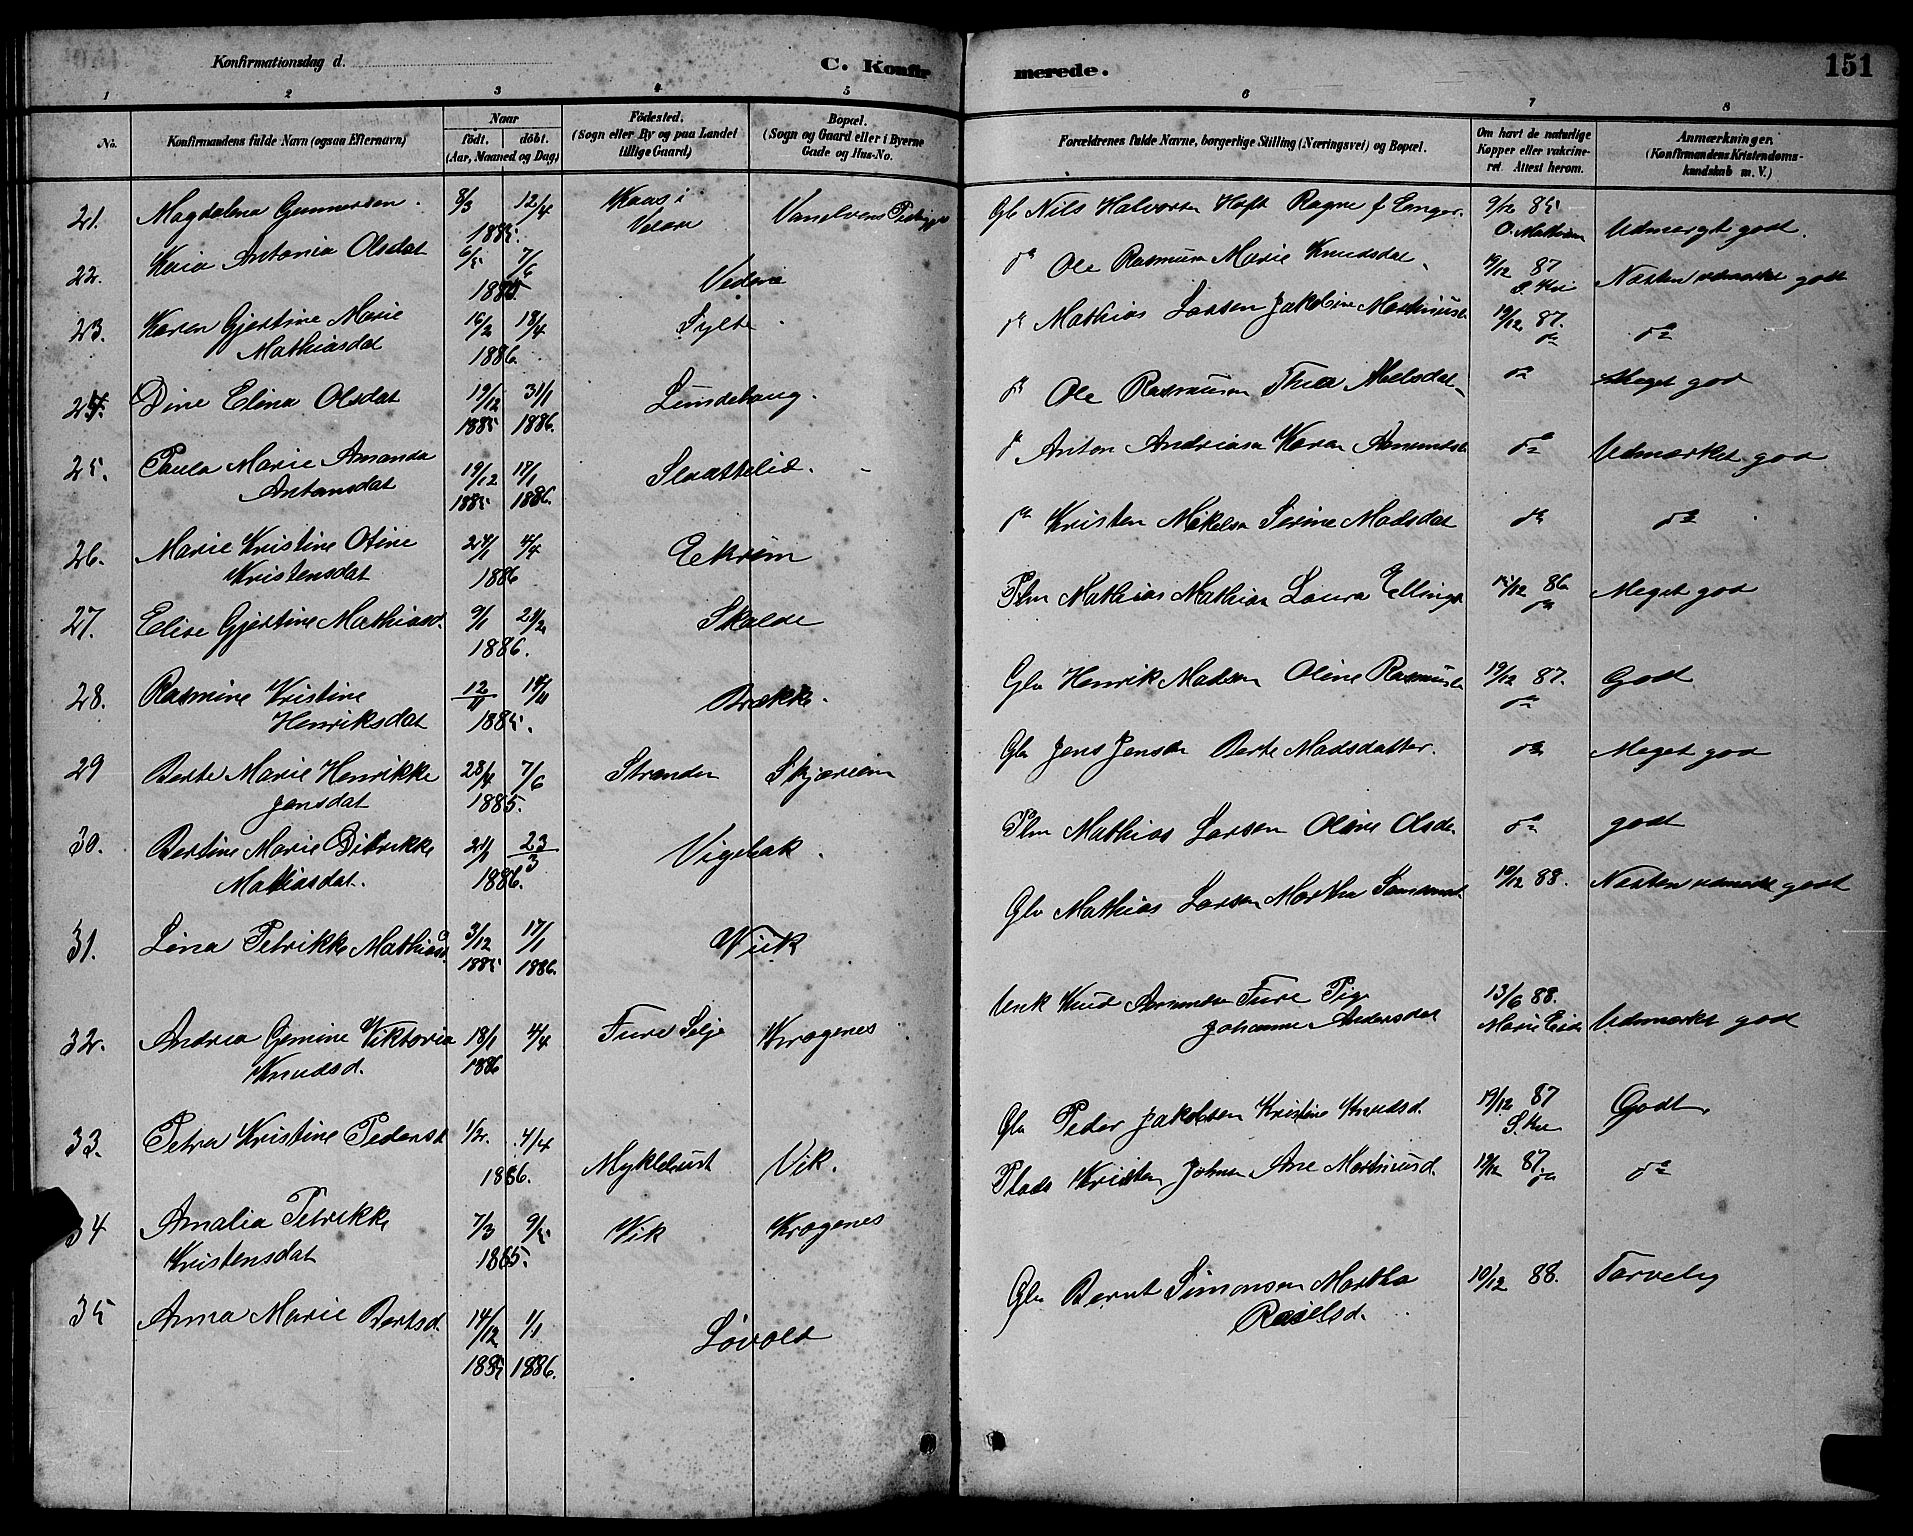 Konfirmationsdag d.
C. Konfirmerede.
151
1 2 3 4 5 6 7 8
No.
Konfirmandens fulde Navn (ogsaa Efternavn)
Naar
födt. döbt.
(Aar, Maaned og Dag)
Födested.
(Sogn eller By og paa Landet
tillige Gaard)
Bopæl.
(Sogn og Gaard eller i Byerne
Gade og Hus-No.
Forældrenes fulde Navne, borgerlige Stilling (Næringsvei) og Bopæl.
Om havt de naturlige
Kopper eller vakcine-
ret. Attest herom.
Anmærkninger.
(Konfirmandens Kristendoms-
kundskab m. V.)
21. Magdalena Gunnersen. 8/3 12/4 1885. Vanelvens Nils Halvorsen Ragne 9/12 85 Udmergt god.
22. Kaia Antonia Olsdat 6/5 7/6 1885 Vedvie do Ole Rasmusen Marie Knudsdat 19/12 87 Næsten udmærket godt
23. Karen Gjertine Marie
Mathiasdat 16/2 18/4 1886. Sylte do Mathias Larsen Jakobine 19/12 87. do do
24. Dine Elina Olsdat 19/12 1885 31/1 1886. Lundebaug. do Ole Rasmusen Thea Nielsdat do Meget god
25. Paula Marie Amanda
Antonsdat 19/12 1885 17/1 1886. Slaattelid. do Anton Andreasen Karen do Udmærket god
26. Marie Kristine Oline
Kristensdat 24/1 4/4 1886 Eekrem do Kristen Mikelsn Serine Madsdat do do
27. Elise Gjertine Mathiasd. 9/1 21/2 1886. Skalde Plm Mathias Mathiasn Laura Ellings 86 do Meget god
28. Rasmine Kristine
Henriksdat 12/11 1885. Brække. Gbr Henrik Madsen Oline Rasmusd 19/12 87. do God
29 Berte Marie Henrikke
Jensdat 28/4 7/6 1885. Stranden Skjæriem Gbr Jens Jensen Berte Madsdatter. do Meget god
30. Bertine Marie Didrikke
Mathiasdat. 21/1 23/3 1886. Vigebak. Plm Mathias Larsen Oline Olsda. do god
31. Lina Petrikke Mathiasd. 3/12 1885 17/1 1886. Wiik Gbr Mathias Larsen Martha 10/12 88. Næsten udmærket godt
32. Andrea Gemine Viktoria
Knudsd. 18/1 4/4 1886 Fure Selje Kragenes Knud Fure Pige
Johanne Andersdat 13/6 88. Marie Udmærket god
33. Petra Kristine Pedersd. 4/4 1886. Myklebust Vik. Gbr Peder Jakobsen Kristine Knudsd. 19/12 87 Godt.
34 Amalia Petrikke
Kristensdat 7/3 9/5 1885. Vik Kragenes Plads Kristen Johnsn Ane Martinusd. 19/12 87. do do
35 Anna Marie Bertsd. 14/12 1885 1/1 1886. Løvold Gbr Bernt Simonsen Martha
Rasilsd. 10/12 88. Tarvelig